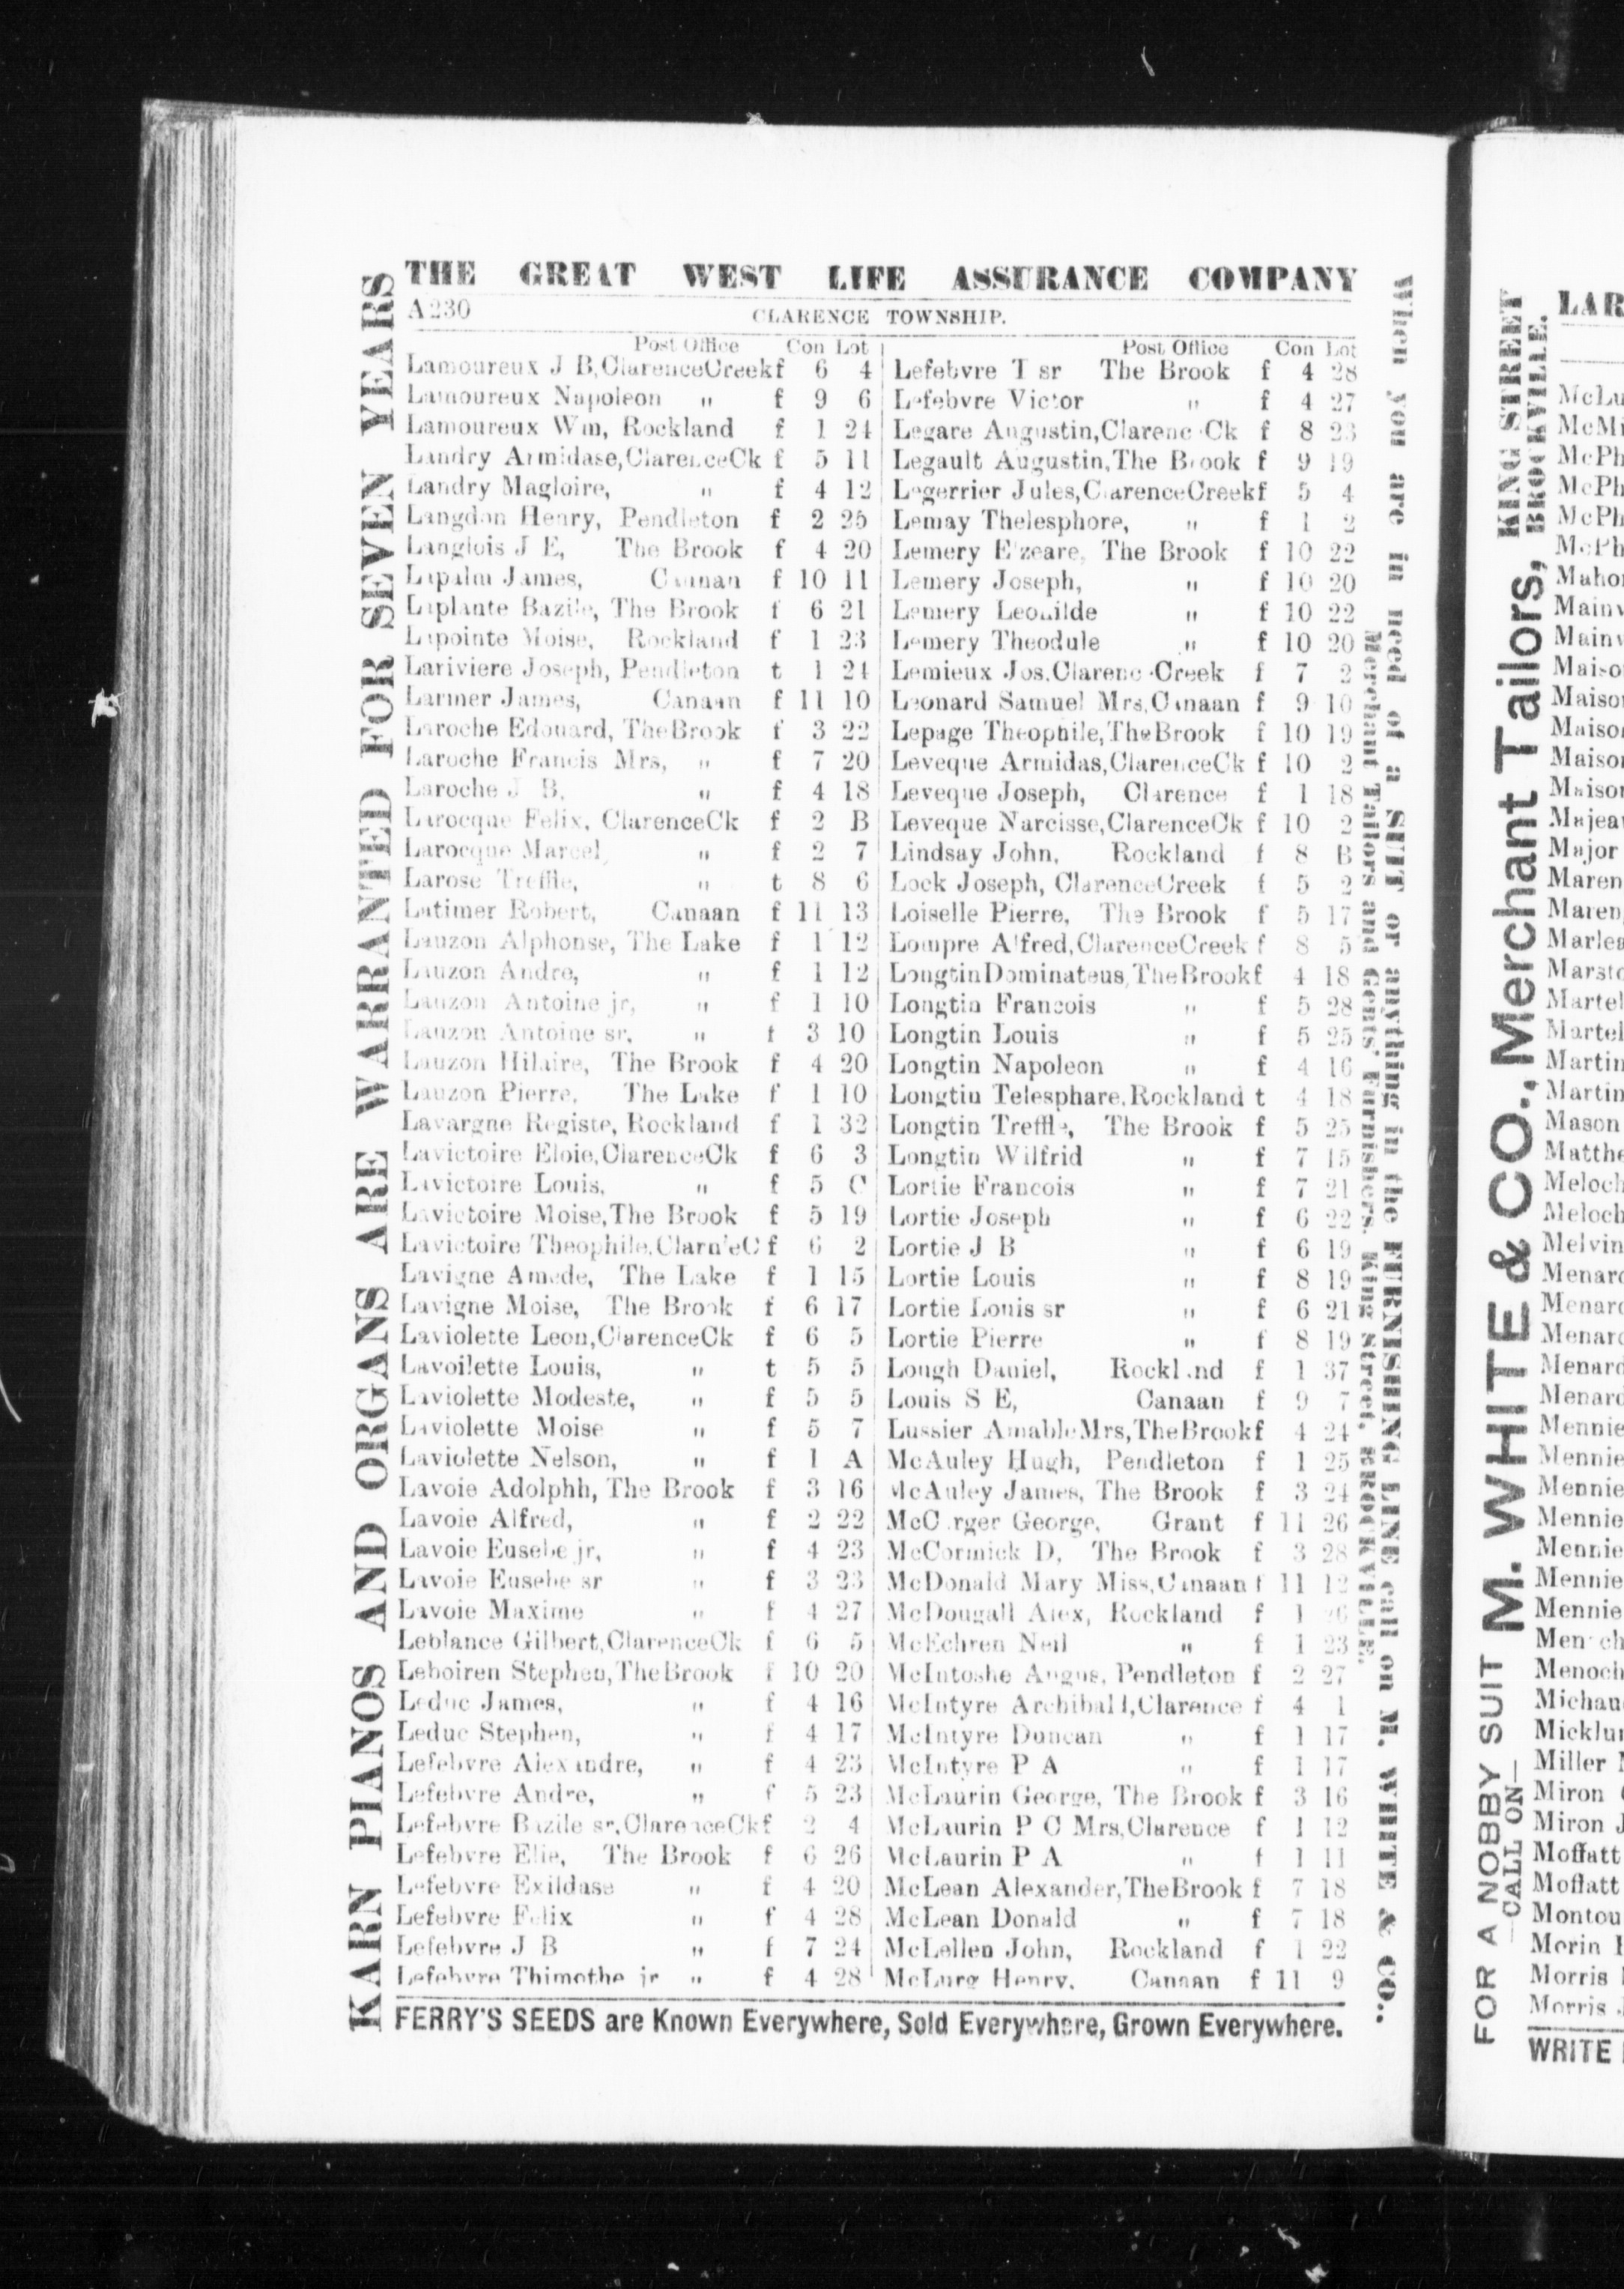 THE GREAT WEST LIFE ASSURANCE COMPANY
A230
CLARENCE TOWNSHIP.
Post Office Con Lot
Lamoureux J B,ClarenceCreek f 6 4
Lamoureux Napoleon " f 9 6
Lamoureux Wm, Rockland f 1 24
Landry Armidase,ClarenceCk f 5 11
Landry Magloire, " f 4 12
Langdon Henry, Pendleton f 2 25
Langlois J E, The Brook f 4 20
Lapalm James, Cannan f 10 11
Laplante Bazile, The Brook f 6 21
Lapointe Moise, Rockland f 1 23
Lariviere Joseph, Pendleton t 1 24
Larmer James, Canaan f 11 10
Laroche Edouard, TheBrook f 3 22
Laroche Francis Mrs, " f 7 20
Laroche J B, " f 4 18
Larocque Felix, ClarenceCk f 2 B
Larocque Marcel, " f 2 7
Larose Treffle, " t 8 6
Latimer Robert, Canaan f 11 13
Lauzon Alphonse, The Lake f 1 12
Lauzon Andre, " f 1 12
Lauzon Antoine jr, " f 1 10
Lauzon Antoine sr, " t 3 10
Lauzon Hilaire, The Brook f 4 20
Lauzon Pierre, The Lake f 1 10
Lavargne Registe, Rockland f 1 32
Lavictoire Eloie,ClarenceCk f 6 3
Lavictoire Louis, " f 5 C
Lavictoire Moise,The Brook f 5 19
Lavictoire Theophile,Clarn'eC f 6 2
Lavigne Amede, The Lake f 1 15
Lavigne Moise, The Brook f 6 17
Laviolette Leon,ClarenceCk f 6 5
Lavoilette Louis, " t 5 5
Laviolette Modeste, " f 5 5
Laviolette Moise " f 5 7
Laviolette Nelson, " f 1 A
Lavoie Adolphh, The Brook f 3 16
Lavoie Alfred, " f 2 22
Lavoie Eusebe jr, " f 4 23
Lavoie Eusebe sr " f 3 23
Lavoie Maxime " f 4 27
Leblance Gilbert,ClarenceCk f 6 5
Leboiren Stephen,TheBrook f 10 20
Leduc James, " f 4 16
Leduc Stephen, " f 4 17
Lefebvre Alexandre, " f 4 23
Lefebvre Andre, " f 5 23
Lefebvre Bazile sr,ClarenceCk f 2 4
Lefebvre Elie, The Brook f 6 26
Lefebvre Exildase " f 4 20
Lefebvre Felix " f 4 28
Lefebvre J B " f 7 24
Lefebvre Thimothe jr " f 4 28
Post Office Con Lot
Lefebvre T sr The Brook f 4 28
Lefebvre Victor " f 4 27
Legare Augustin,Clarence Ck f 8 23
Legault Augustin,The Brook f 9 19
Legerrier Jules,ClarenceCreek f 5 4
Lemay Thelesphore, " f 1 2
Lemery Elzeare, The Brook f 10 22
Lemery Joseph, " f 10 20
Lemery Leonilde " f 10 22
Lemery Theodule " f 10 20
Lemieux Jos,Clarence Creek f 7 2
Leonard Samuel Mrs,Canaan f 9 10
Lepage Theophile,TheBrook f 10 19
Leveque Armidas,ClarenceCk f 10 2
Leveque Joseph, Clarence f 1 18
Leveque Narcisse,ClarenceCk f 10 2
Lindsay John, Rockland f 8 B
Lock Joseph, ClarenceCreek f 5 2
Loiselle Pierre, The Brook f 5 17
Lompre Alfred,ClarenceCreek f 8 5
LongtinDominateus,TheBrook f 4 18
Longtin Francois " f 5 28
Longtin Louis " f 5 25
Longtin Napoleon " f 4 16
Longtin Telesphare,Rockland t 4 18
Longtin Treffle, The Brook f 5 25
Longtin Wilfrid " f 7 15
Lortie Francois " f 7 21
Lortie Joseph " f 6 22
Lortie J B " f 6 19
Lortie Louis " f 8 19
Lortie Louis sr " f 6 21
Lortie Pierre " f 8 19
Lough Daniel, Rockland f 1 37
Louis S E, Canaan f 9 7
Lussier AmableMrs,TheBrook f 4 24
McAuley Hugh, Pendleton f 1 25
McAuley James, The Brook f 3 24
George, Grant f 11 26
McCormick D, The Brook f 3 28
McDonald Mary Miss,Canaan f 11 12
McDougall Alex, Rockland f 1 26
McEchren Neil " f 1 23
McIntoshe Angus, Pendleton f 2 27
McIntyre Archibald,Clarence f 4 1
McIntyre Duncan " f 1 17
McIntyre P A " f 1 17
McLaurin George, The Brook f 3 16
McLaurin P C Mrs,Clarence f 1 12
McLaurin P A " f 1 11
McLean Alexander,TheBrook f 7 18
McLean Donald " f 7 18
McLellen John, Rockland f 1 22
McLurg Henry, Canaan f 11 9
FERRY'S SEEDS are Known Everywhere, Sold Everywhere, Grown Everywhere.
KARN PIANOS AND ORGANS ARE WARRANTED FOR SEVEN YEARS
When you are in need of a SUIT or anything in the FURNISHING LINE call on M. WHITE & CO.,
Merchant Tailors and Gents' Furnishers, King Street, BROCKVILLE.
FOR A NOBBY SUIT
—CALL ON—
M. WHITE & CO., Merchant Tailors,
KING STREET
BROCKVILLE.
LAR
McLu
McMi
McPh
McPh
McPh
McPh
Mahon
Mainv
Mainv
Maiso
Maison
Maison
Maison
Maison
Majeau
Major
Maren
Maren
Marlea
Marsto
Martel
Martel
Martin
Martin
Mason
Matthe
Meloch
Meloch
Melvin
Menard
Menard
Menard
Menard
Menard
Mennie
Mennie
Mennie
Mennie
Mennie
Mennie
Mennie
Menoch
Michau
Micklu
Miller
Miron
Miron J
Moffatt
Moffatt
Montou
Morin
Morris
Morris
WRITE